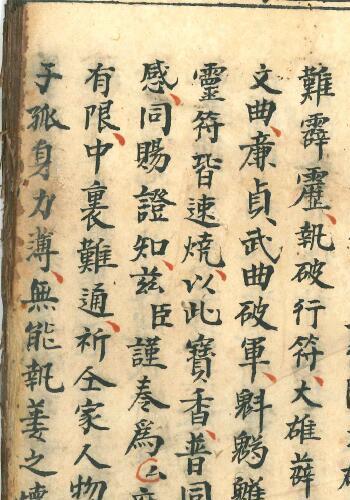 難霹靂執破行符大雄薜
文曲廉貞武曲破軍魁𩲃
靈符皆速燒以此寶香普同
感同賜證知茲臣謹奏為厶
有限中裏難通祈仝家人物
子孤身力薄無能執姜之